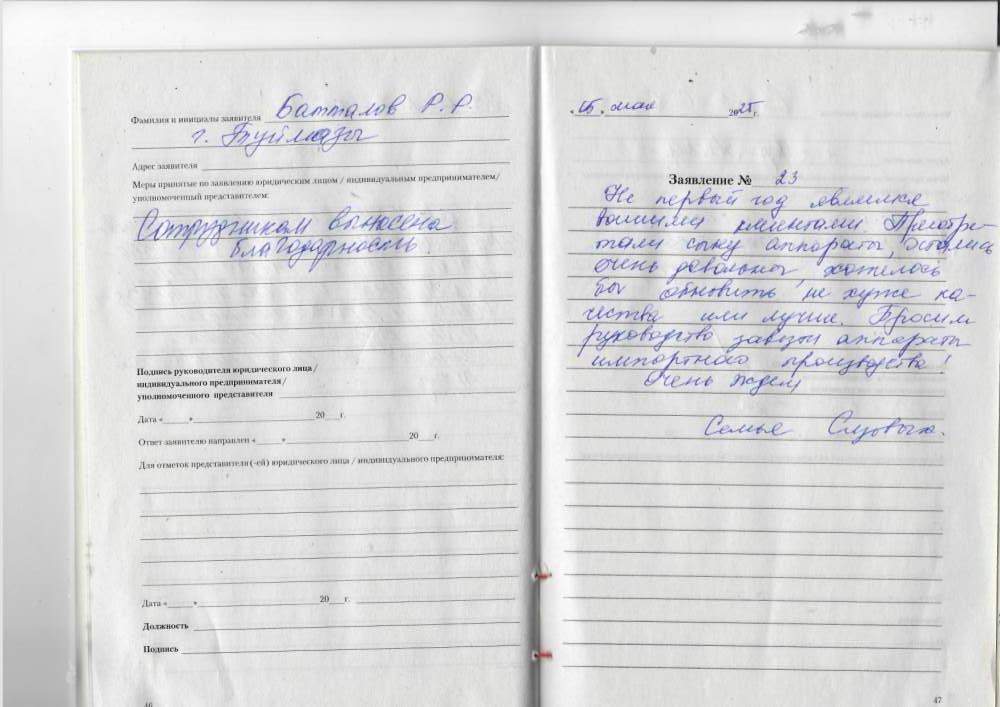 Фамилия и инициалы заявителя Батталов Р. Р.
г. Туймазы
Адрес заявителя
Меры принятые по заявлению юридическим лицом / индивидуальным предпринимателем/
уполномоченный представителем:
Сотрудникам вынесена
благодарность.
Подпись руководителя юридического лица /
индивидуального предпринимателя /
уполномоченного представителя
Дата «____»____ 20__г.
Ответ заявителю направлен «____»____ 20__г.
Для отметок представителя (-ей) юридического лица / индивидуального предпринимателя:
Дата «____»____ 20__г.
Должность
Подпись
46
«15» мая 2025г.
Заявление № 23
Не первый год являемся
вашими клиентами. Приобре-
тали сыну аппараты, остались
очень довольны, хотелось
бы обновить не хуже ка-
чества или лучше. Просим
руководство завезти аппараты
импортного производства!
Очень ждем
Семья
47